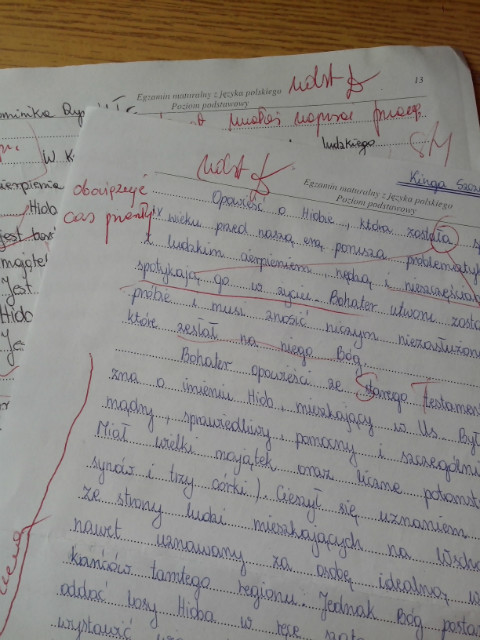 13
Egzamin maturalny z języka polskiego
Poziom podstawowy
ndst
napisać pracę
ominika
ludzkiego
SM
W K
ierpienie
Hido
jest
mająte
Jest
Hido
Ja
ndst
Kinga
Egzamin maturalny z języka polskiego
Poziom podstawowy
czas
Opowieść o Hiobie, która została s
IX wieku przed naszą erą, porusza problematyk
z ludzkim cierpieniem, nędzą i nieszczęścia
spotykają go w życiu. Bohater utworu zosta
próbę i musi znosić niczym niezasłużone
które zesłał na niego Bóg.
Bohater opowieści ze starego Testament
zna o imieniu Hiob, mieszkający w Us. Był
mądry, sprawiedliwy, pomocny i szczególni
Miał wielki majątek oraz liczne potomst
synów i trzy córki). Cieszył się uznaniem
ze strony ludzi mieszkających na Wscho
nawet uznawany za osobę idealną w
kańców tamtego regionu. Jednak Bóg posta
oddać losy Hioba w ręce
wystawić